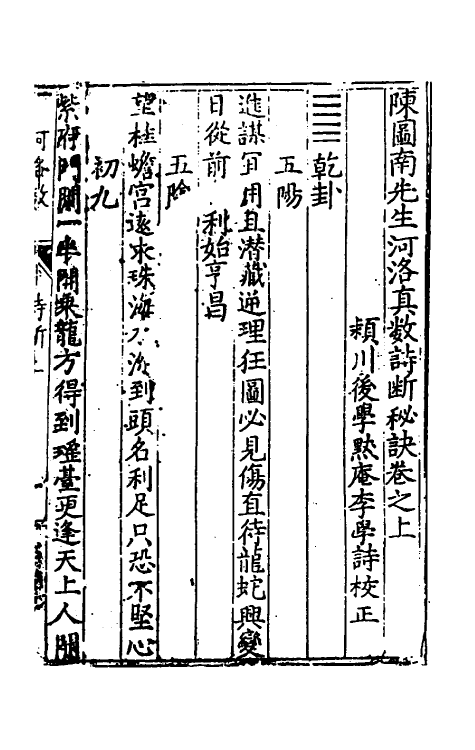 陳圖南先生河洛真数詩断秘訣卷之上
潁川後學㸃庵李學詩校正
䷀乾卦
五陽
造謀冝用且潜藏逆理狂圖必見傷直待龍蛇興變
日從前 利始亨昌
五陰
望桂蟾宮遠求珠海 深到頭名利足只恐不堅心
初九
紫府門關一半開乘龍方得到瑶臺更逢天上人
河洛数 詩断上